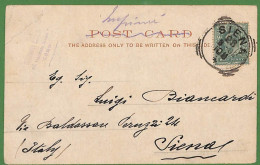 POST CARD
THE ADDRESS ONLY TO BE WRITTEN ON THIS
SIENA
Eg. Sig.
Luigi Biancardi
Via Baldassarre Peruzzi
Siena
(Italy)